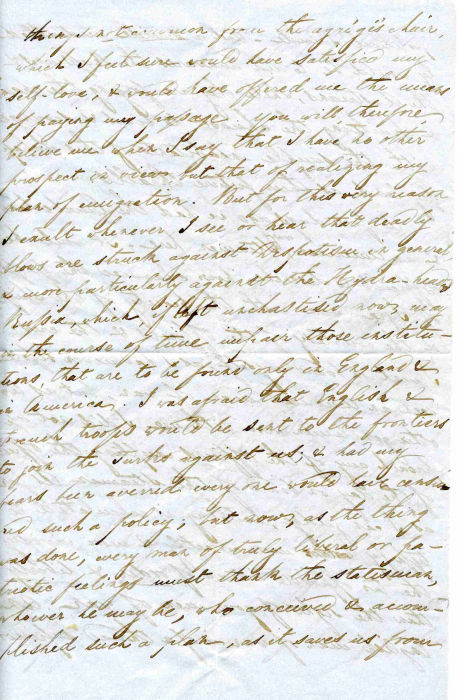 from the agrégé's chair,
which I feel sure would have satisfied my
self-love, & would have offered me the means
of paying my passage. you will, therefore,
believe me when I say that I have no other
prospect in view, but that of realizing my
plan of emigration. But for this very reason
I exult whenever I see or hear that deadly
blows are struck against Despotism in general
& more particularly against the Hydra-head
Russia, which, if left unchastised now, may
in the course of time impair those institu-
tions, that are to be found only in England &
in America. I was afraid that English &
French troops would be sent to the frontiers
to join the Turks against us; & had my
fears been averred every one would have censu
red such a policy; but now, as the thing
was done, every man of truly liberal or pa-
triotic feelings must thank the statesman,
whoever he may be, who conceived & accom-
plished such a plan, as it saves us from